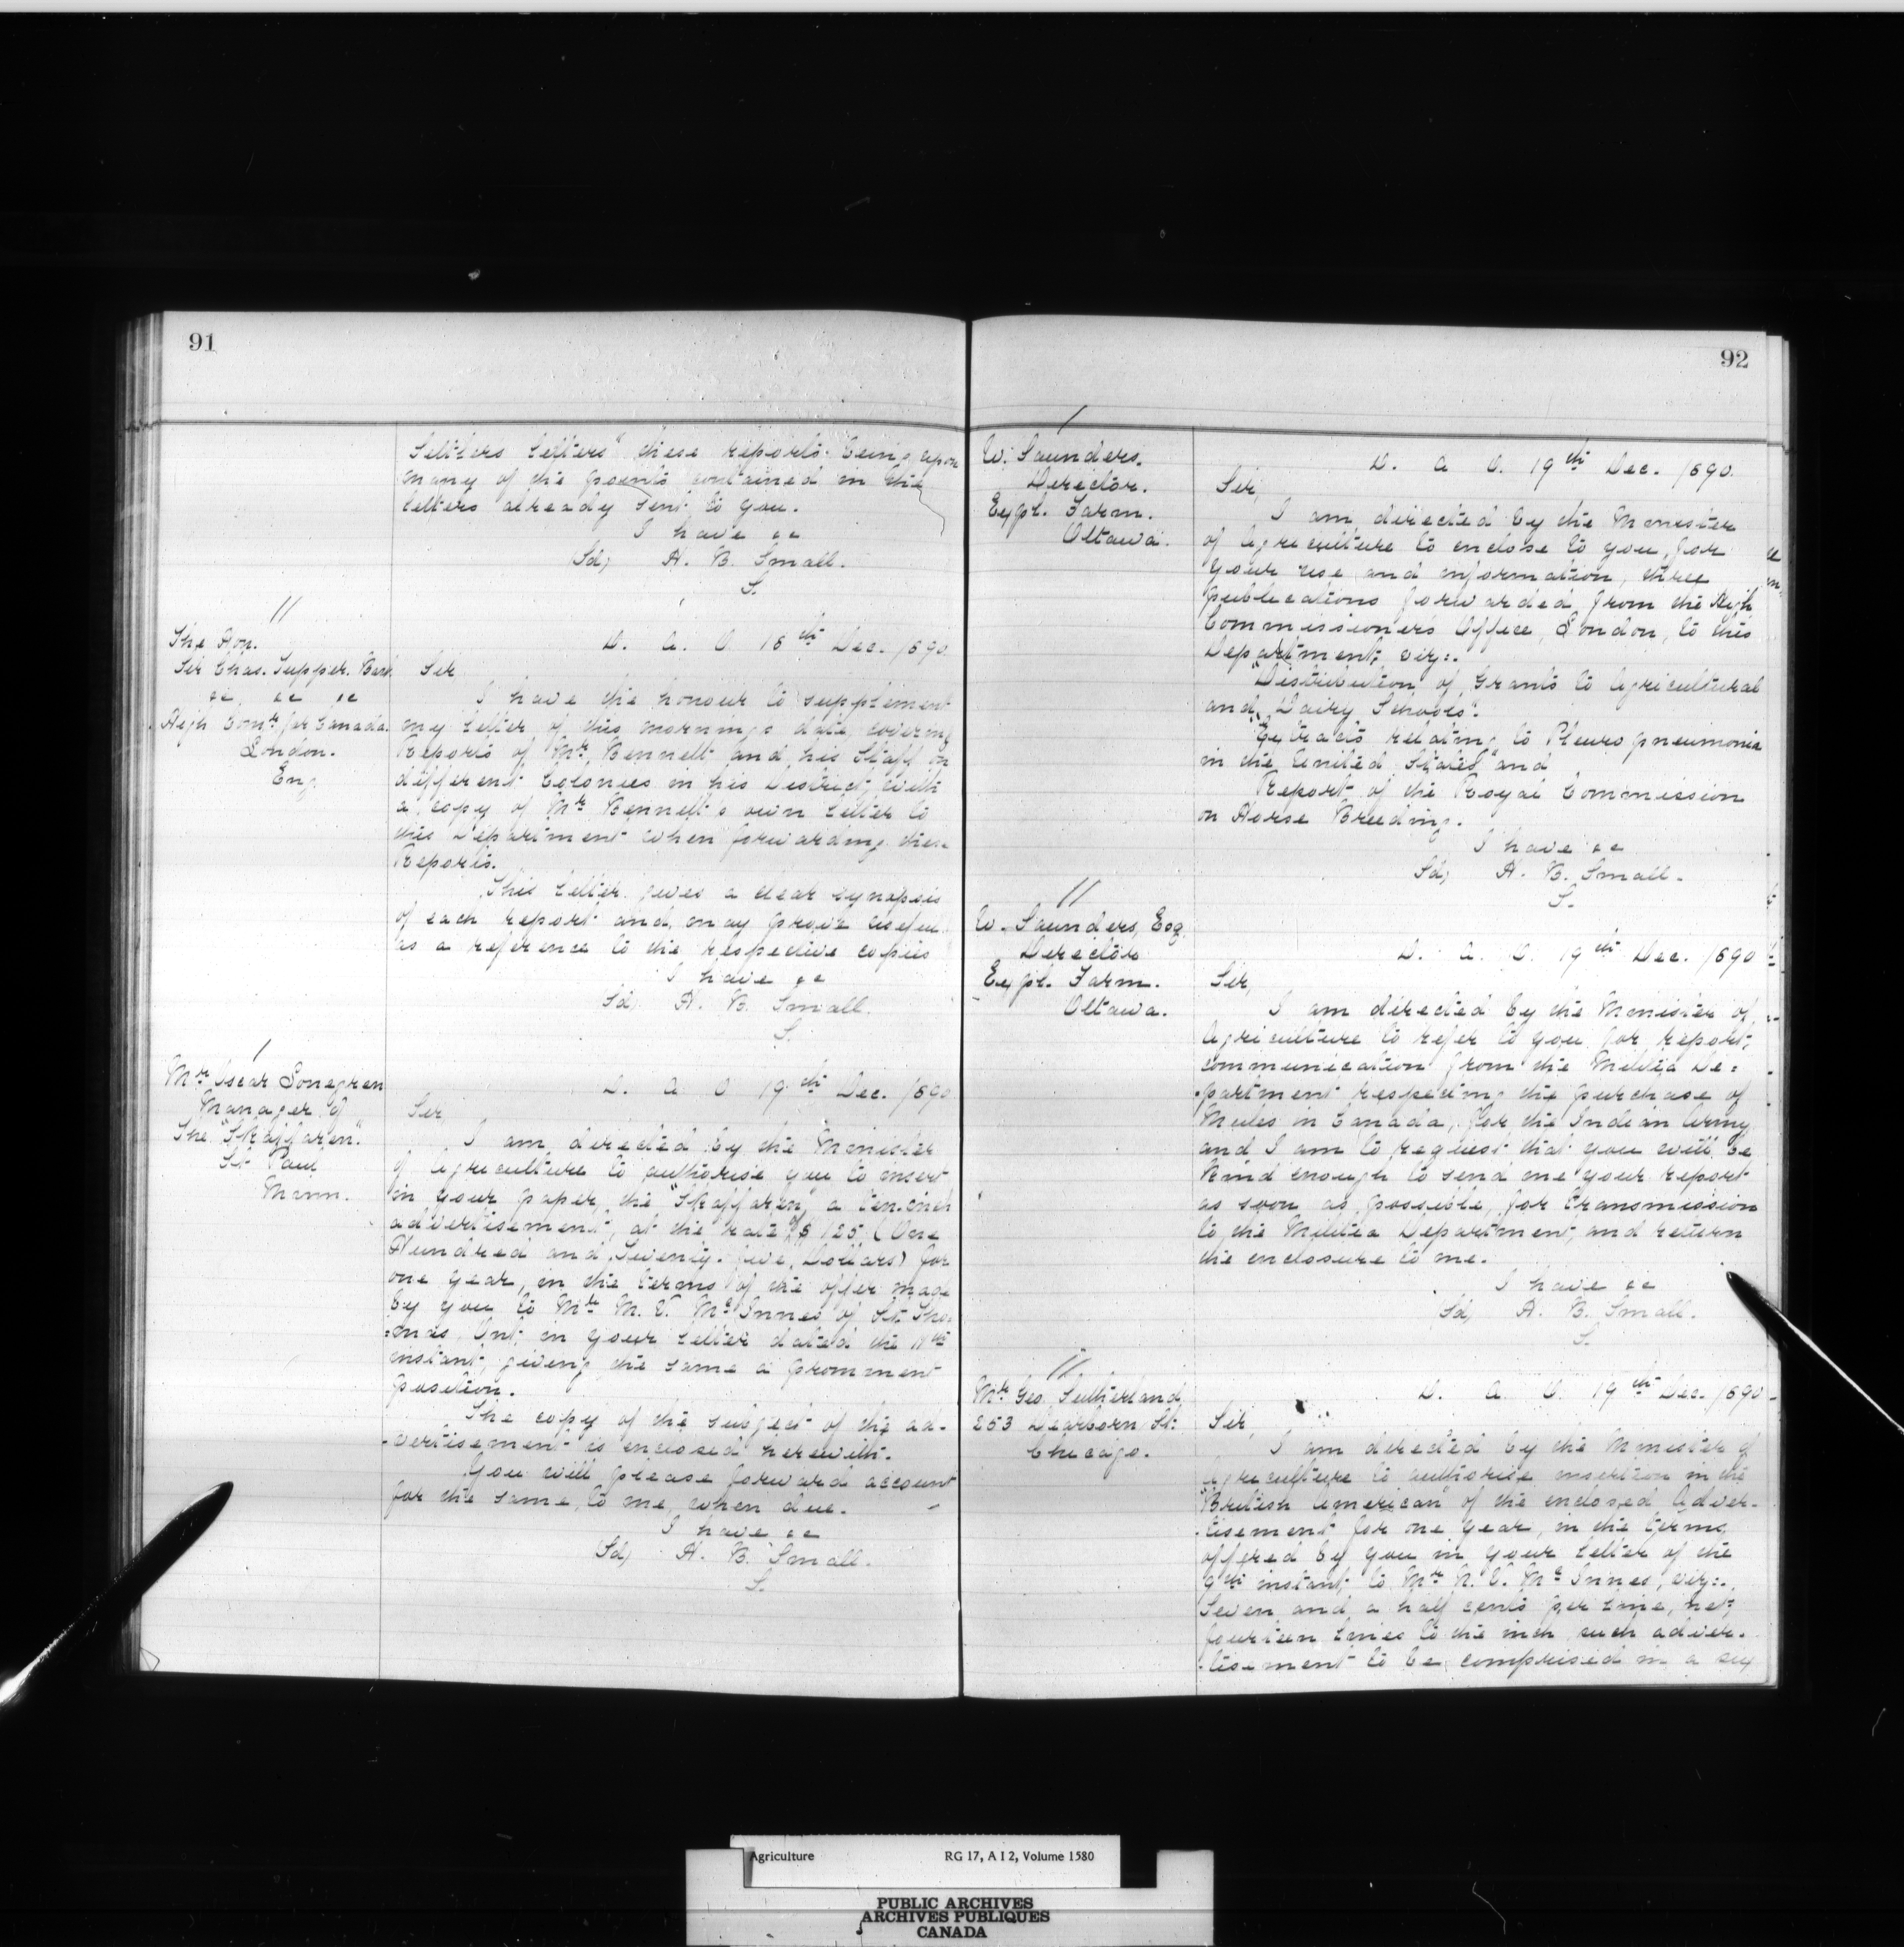 91
Settlers Letters" these reports being upon
many of the points contained in the
letters already sent to you.
I have &c
Sd, H. B. Small.
S.
//
The Hon.
Sir Chas. Tupper. Bart.
&c &c &c
High Comr. for Canada.
London.
Eng
D. A. O. 18th Dec. 1890.
Sir
I have the honour to supplement
my letter of this mornings date, covering
Reports of Mr. Bennett and his Staff on
different Colonies in his District, with
a copy of Mr. Bennett's own letter to
this Department when forwarding these
Reports.
This letter gives a clear synopsis
of each report and may prove useful
as a reference to the respective copies
I have &c
Sd, H. B. Small.
S.
/
Mr Oscar Sonegren
Manager of
The "Skaffaren".
St. Paul
Minn.
D. A. O 19th Dec. 1890
Sir
I am directed by the Minister
of Agriculture to authorise you to insert
in your paper, the "Skaffaren," a ten-inch
advertisement, at the rate of $125 (One
Hundred and Twenty-five Dollars) for
one year, in the terms of the offer made
by you to Mr. M. V. McInnes of St. Tho-
=mas, Ont. in your letter dated the 11th
instant, giving the same a prominent
position.
The copy of the subject of the ad-
-vertisement is enclosed herewith.
You will please forward account
for the same, to me, when due.
I have &c
Sd, H. B. Small.
S.
92
/
W. Saunders.
Director.
Expl. Farm.
Ottawa.
D. A. O. 19th Dec. 1890.
Sir,
I am directed by the Minister
of Agriculture to enclose to you, for
your use and information, three
publications forwarded from the High
Commissioner's Office, London, to this
Department, viz:.
"Distribution of Grants to Agricultural
and Dairy Schools".
"Extracts relating to Pleuro pneumonia
in the United States" and
Report of the Royal Commission
on Horse Breeding.
I have &c
Sd, H. B. Small.
S.
//
W. Saunders, Esq.
Director
Expl. Farm.
Ottawa.
D. A. O. 19th Dec. 1890
Sir,
I am directed by the Minister of
Agriculture to refer to you for report,
communication from the Militia De=
-partment respecting the purchase of
Mules in Canada, for the Indian Army
and I am to request that you will be
kind enough to send me your report
as soon as possible, for transmission
to the Militia Department, and return
the enclosure to me.
I have &c
Sd, H. B. Small.
S.
//
Mr. Geo. Sutherland,
253 Dearborn St.
Chicago.
D. A. O. 19th Dec. 1890-
Sir,
I am directed by the Minister of
Agriculture to authorise insertion in the
"British American" of the enclosed Adver-
-tisement for one year, in the terms
offered by you in your letter of the
9th instant, to Mr. M. V. McInnes, viz:.
Seven and a half cents per line, net,
fourteen lines to the inch, such adver-
-tisement to be comprised in a six
Agriculture RG 17, A I 2, Volume 1580
PUBLIC ARCHIVES
ARCHIVES PUBLIQUES
CANADA